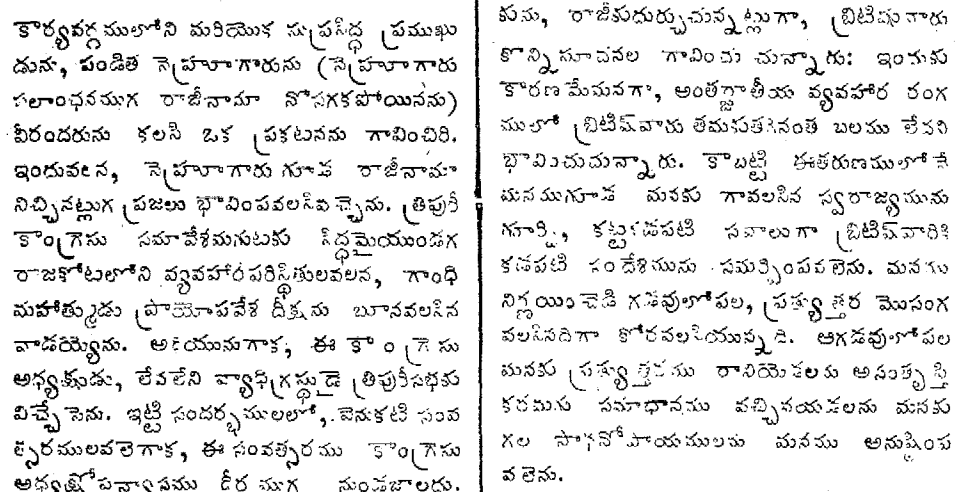 కార్యవర్గములోని మరియొక సుప్రసిద్ధ ప్రముఖు
డును, పండిత నెహ్రూగారును (నెహ్రూగారు
సలాంఛనముగ రాజీనామా నొసగకపోయినను)
వీరందరును కలసి ఒక ప్రకటనను గావించిరి.
ఇందువలన, నెహ్రూగారు గూడ రాజీనామా
నిచ్చినట్లుగ ప్రజలు భావింపవలసివచ్చెను. త్రిపురి
కాంగ్రెసు సమావేశమగుటకు సిద్ధమైయుండగ
రాజకోటలోని వ్యవహారపరిస్థితులవలన, గాంధి
మహాత్ముడు ప్రాయోపవేశ దీక్షను బూనవలసిన
వాడయ్యెను. అదియునుగాక, ఈ కాంగ్రెసు
అధ్యక్షుడు, లేవలేని వ్యాధిగ్రస్థుడై త్రిపురిసభకు
విచ్చేసెను. ఇట్టి సందర్భములలో, వెనుకటి సంవ
త్సరములవలెగాక, ఈ సంవత్సరము కాంగ్రెసు
అధ్యక్షోపన్యాసము దీర్ఘముగ నుండజాలదు.
కును, రాజీకుదుర్చుచున్నట్లుగా, బ్రిటిషువారు
కొన్నిసూచనల గావించు చున్నారు: ఇందుకు
కారణమేమనగా, అంతర్జాతీయ వ్యవహార రంగ
ములో బ్రిటిష్‌వారు తమకుతగినంత బలము లేదని
భావించుచున్నారు. కాబట్టి ఈతరుణములోనే
మనముగూడ మనకు గావలసిన స్వరాజ్యమును
గూర్చి, కట్టకడపటి సవాలుగా బ్రిటిష్‌వారికి
కడపటి సందేశమును సమర్పింపవలెను. మనము
నిర్ణయించెడి గడువులోపల, ప్రత్యుత్తర మొసంగ
వలసినదిగా కోరవలసియున్నది. ఆగడువులోపల
మనకు ప్రత్యుత్తరము రానియెడలకు అసంతృప్తి
కరమగు సమాధానము వచ్చినయెడలను మనకు
గల సాధనోపాయములను మనము అనుష్టింప
వలెను.